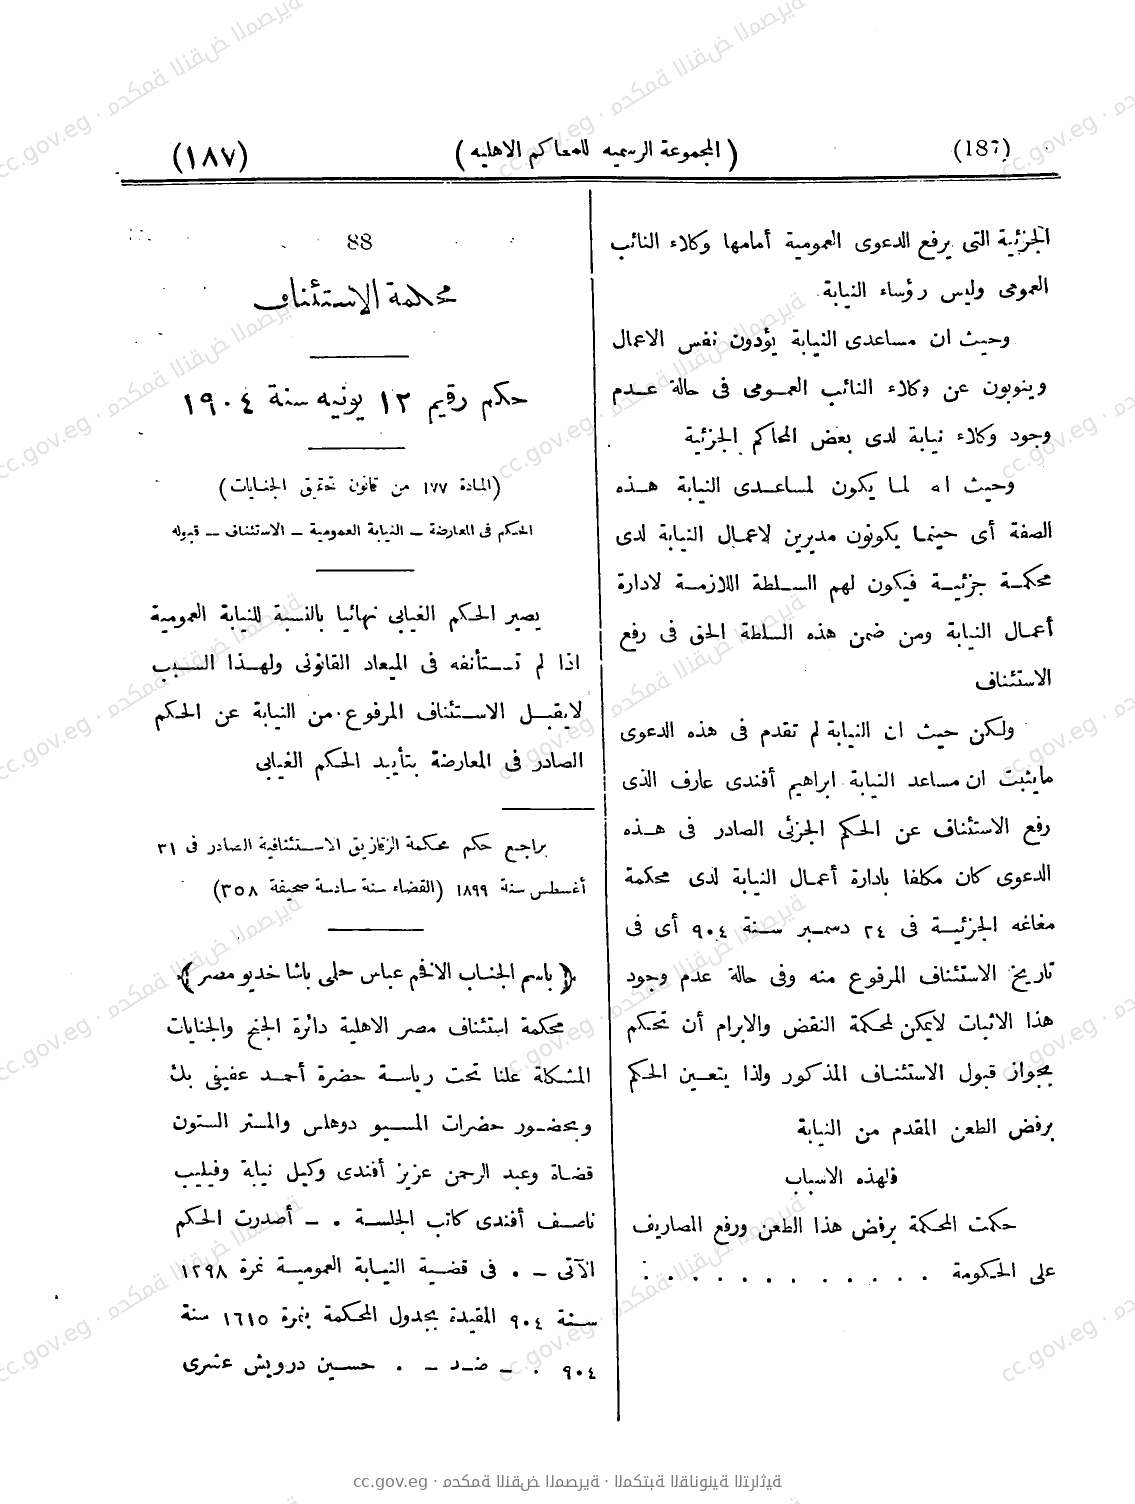 (187)
( المجموعة الرسميه للمحاكم الاهليه )
(١٨٧)
الجزئية التى يرفع الدعوى العمومية أمامها وكلاء النائب
العمومى وليس رؤساء النيابة
وحيث ان مساعدى النيابة يؤدون نفس الاعمال
وينوبون عن وكلاء النائب العمومى فى حالة عدم
وجود وكلاء نيابة لدى بعض المحاكم الجزئية
وحيث انه لما يكون لمساعدى النيابة هذه
الصفة أى حينما يكونون مديرين لاعمال النيابة لدى
محكمة جزئية فيكون لهم السلطة اللازمة لادارة
أعمال النيابة ومن ضمن هذه السلطة الحق فى رفع
الاستئناف
ولكن حيث ان النيابة لم تقدم فى هذه الدعوى
مايثبت ان مساعد النيابة ابراهيم أفندى عارف الذى
رفع الاستئناف عن الحكم الجزئى الصادر فى هذه
الدعوى كان مكلفا بادارة أعمال النيابة لدى محكمة
مغاغه الجزئية فى ٢٤ دسمبر سنة ٩٠٤ أى فى
تاريخ الاستئناف المرفوع منه وفى حالة عدم وجود
هذا الاثبات لايمكن لمحكمة النقض والابرام أن تحكم
بجواز قبول الاستئناف المذكور ولذا يتعين الحكم
برفض الطعن المقدم من النيابة
فلهذه الاسباب
حكمت المحكمة برفض هذا الطعن ورفع المصاريف
على الحكومة . . . . . . . . . . . .
88
محكمة الاستئناف
حكم رقيم ١٢ يونيه سنة ١٩٠٤
(المادة ١٧٧ من قانون تحقيق الجنايات)
الحكم فى المعارضة – النيابة العمومية – الاستئناف – قبوله
يصير الحكم الغيابى نهائيا بالنسبة للنيابة العمومية
اذا لم تستأنفه فى الميعاد القانونى ولهذا السبب
لايقبل الاستئناف المرفوع من النيابة عن الحكم
الصادر فى المعارضة بتأييد الحكم الغيابى
يراجع حكم محكمة الزقازيق الاستئنافية الصادر فى ٣١
أغسطس سنة ١٨٩٩ (القضاء سنة سادسة صحيفة ٣٥٨)
﴿ باسم الجناب الافخم عباس حلمى باشا خديو مصر ﴾
محكمة استئناف مصر الاهلية دائرة الجنح والجنايات
المشكلة علنا تحت رياسة حضرة أحمد عفيفى بك
وبحضور حضرات المسيو دوهلس والمستر الستون
قضاة وعبد الرحمن عزيز أفندى وكيل نيابة وفيليب
ناصف أفندى كاتب الجلسة . – أصدرت الحكم
الآتى – . فى قضية النيابة العمومية نمرة ١٢٩٨
سنة ٩٠٤ المقيدة بجدول المحكمة بنمرة ١٦١٥ سنة
٩٠٤ . – ضد – . حسين درويش عشرى
cc.gov.eg · محكمة النقض المصرية · المكتبة القانونية التراثية